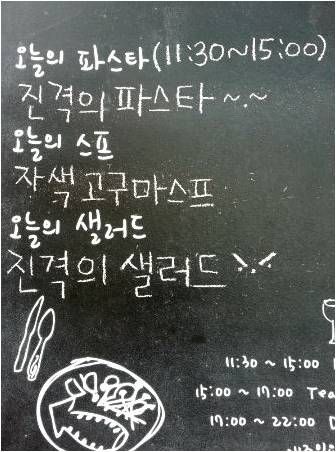 오늘의 파스타(11:30~15:00)
진격의 파스타~.~
오늘의 스프
자색고구마스프
오늘의 샐러드
진격의 샐러드
11:30 ~ 15:00
15:00 ~ 17:00 Tea
17:00 ~ 22:00